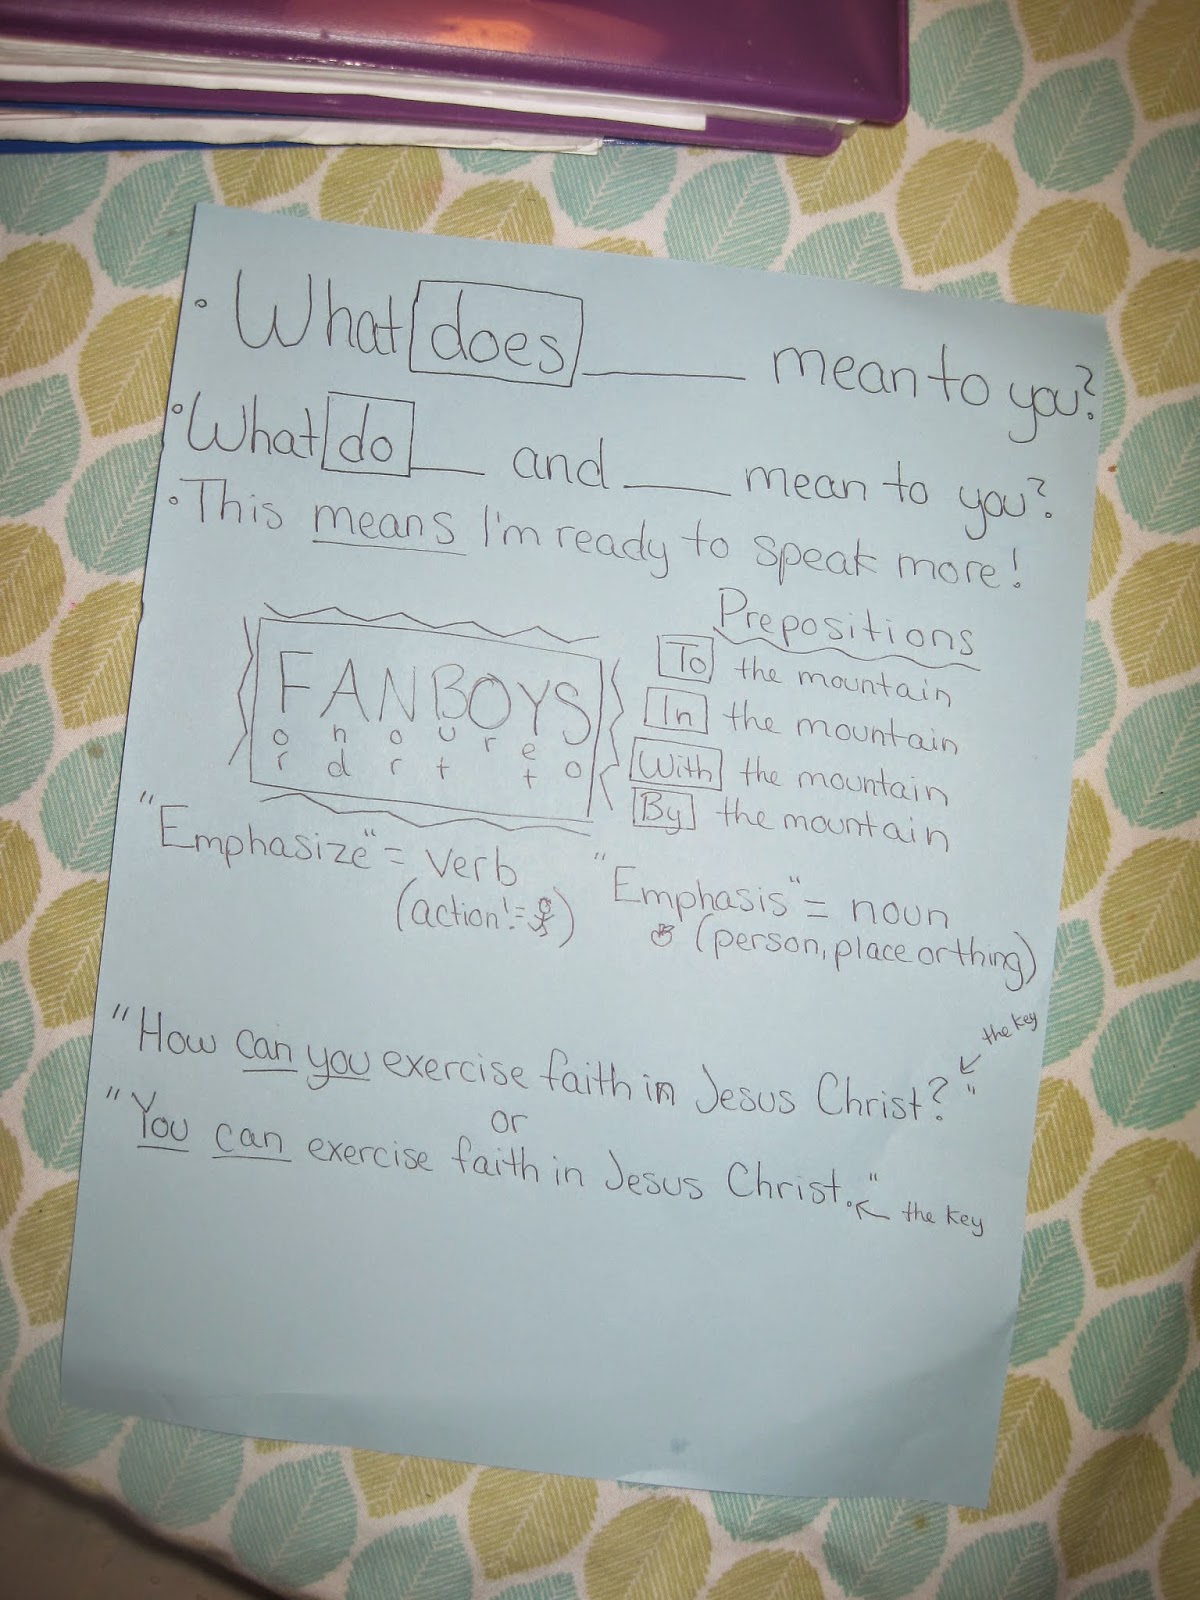 • What does ____ mean to you?
• What do ___ and ____ mean to you?
• This means I'm ready to speak more!
FANBOYS
o n o u r e o
r d r t t
Prepositions
To the mountain
In the mountain
With the mountain
By the mountain
"Emphasize" = verb
(action! = )
"Emphasis" = noun
(person, place or thing)
the key
"How can you exercise faith in Jesus Christ?"
or
"You can exercise faith in Jesus Christ."
the key